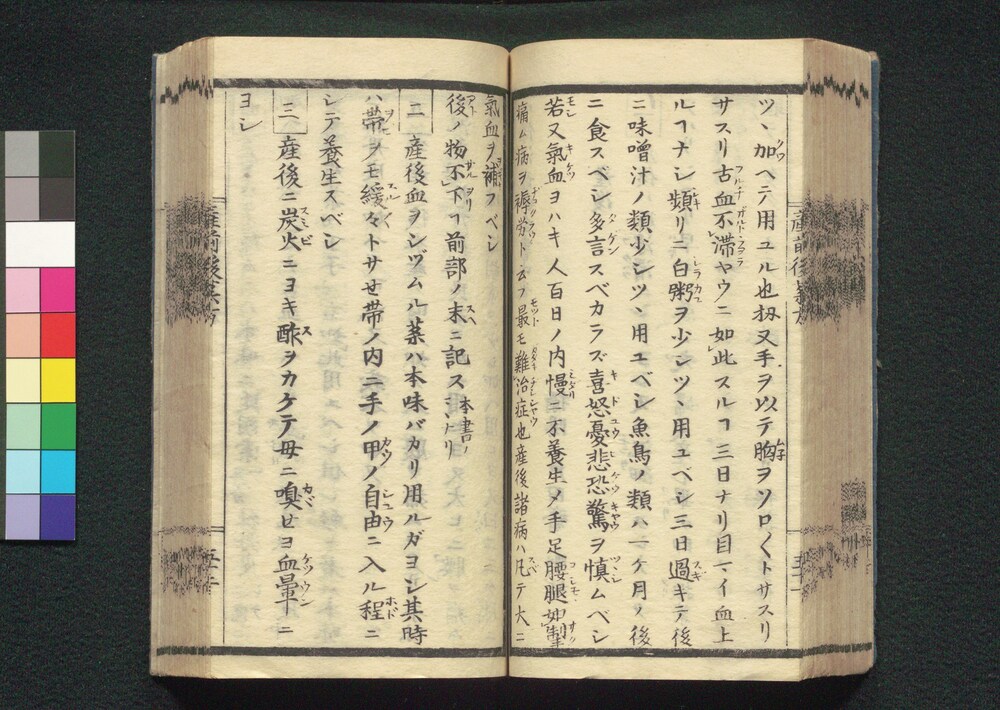 ツヽ加ヘテ用ユル也扨又手ヲ以テ胸ヲソロ〱トサスリ
サスリ古血不滞ヤウニ如此スルヿ三日ナリ目マイ血上
ルヿナシ頻リニ白粥ヲ少シツヽ用ユベシ三日過キテ後
ニ味噌汁ノ類少シツヽ用ユベシ魚鳥ノ類ハ一ケ月ノ後
ニ食スベシ多言スベカラズ喜怒憂悲恐驚ヲ慎ムベシ
若又氣血ヲハキ人百日ノ内慢ニ不養生メ手足腰腿如掣
痛ム病ヲ褥労ト云フ最モ難治症也産後諸病ハ凡テ大ニ
氣血ヲ補フベシ
後ノ物不下ヿ前部ノ末ニ記ス本書ノコトリ
二 産後血ヲシヅムル薬ハ本味バカリ用ルガヨシ其時
ハ帯ヲモ緩々トサせ帯ノ内ニ手ノ甲ノ自由ニ入ル程ニ
シテ養生スベシ
三 産後ニ炭火ニヨキ酢ヲカケテ母ニ嗅せヨ血暈ニ
ヨシ